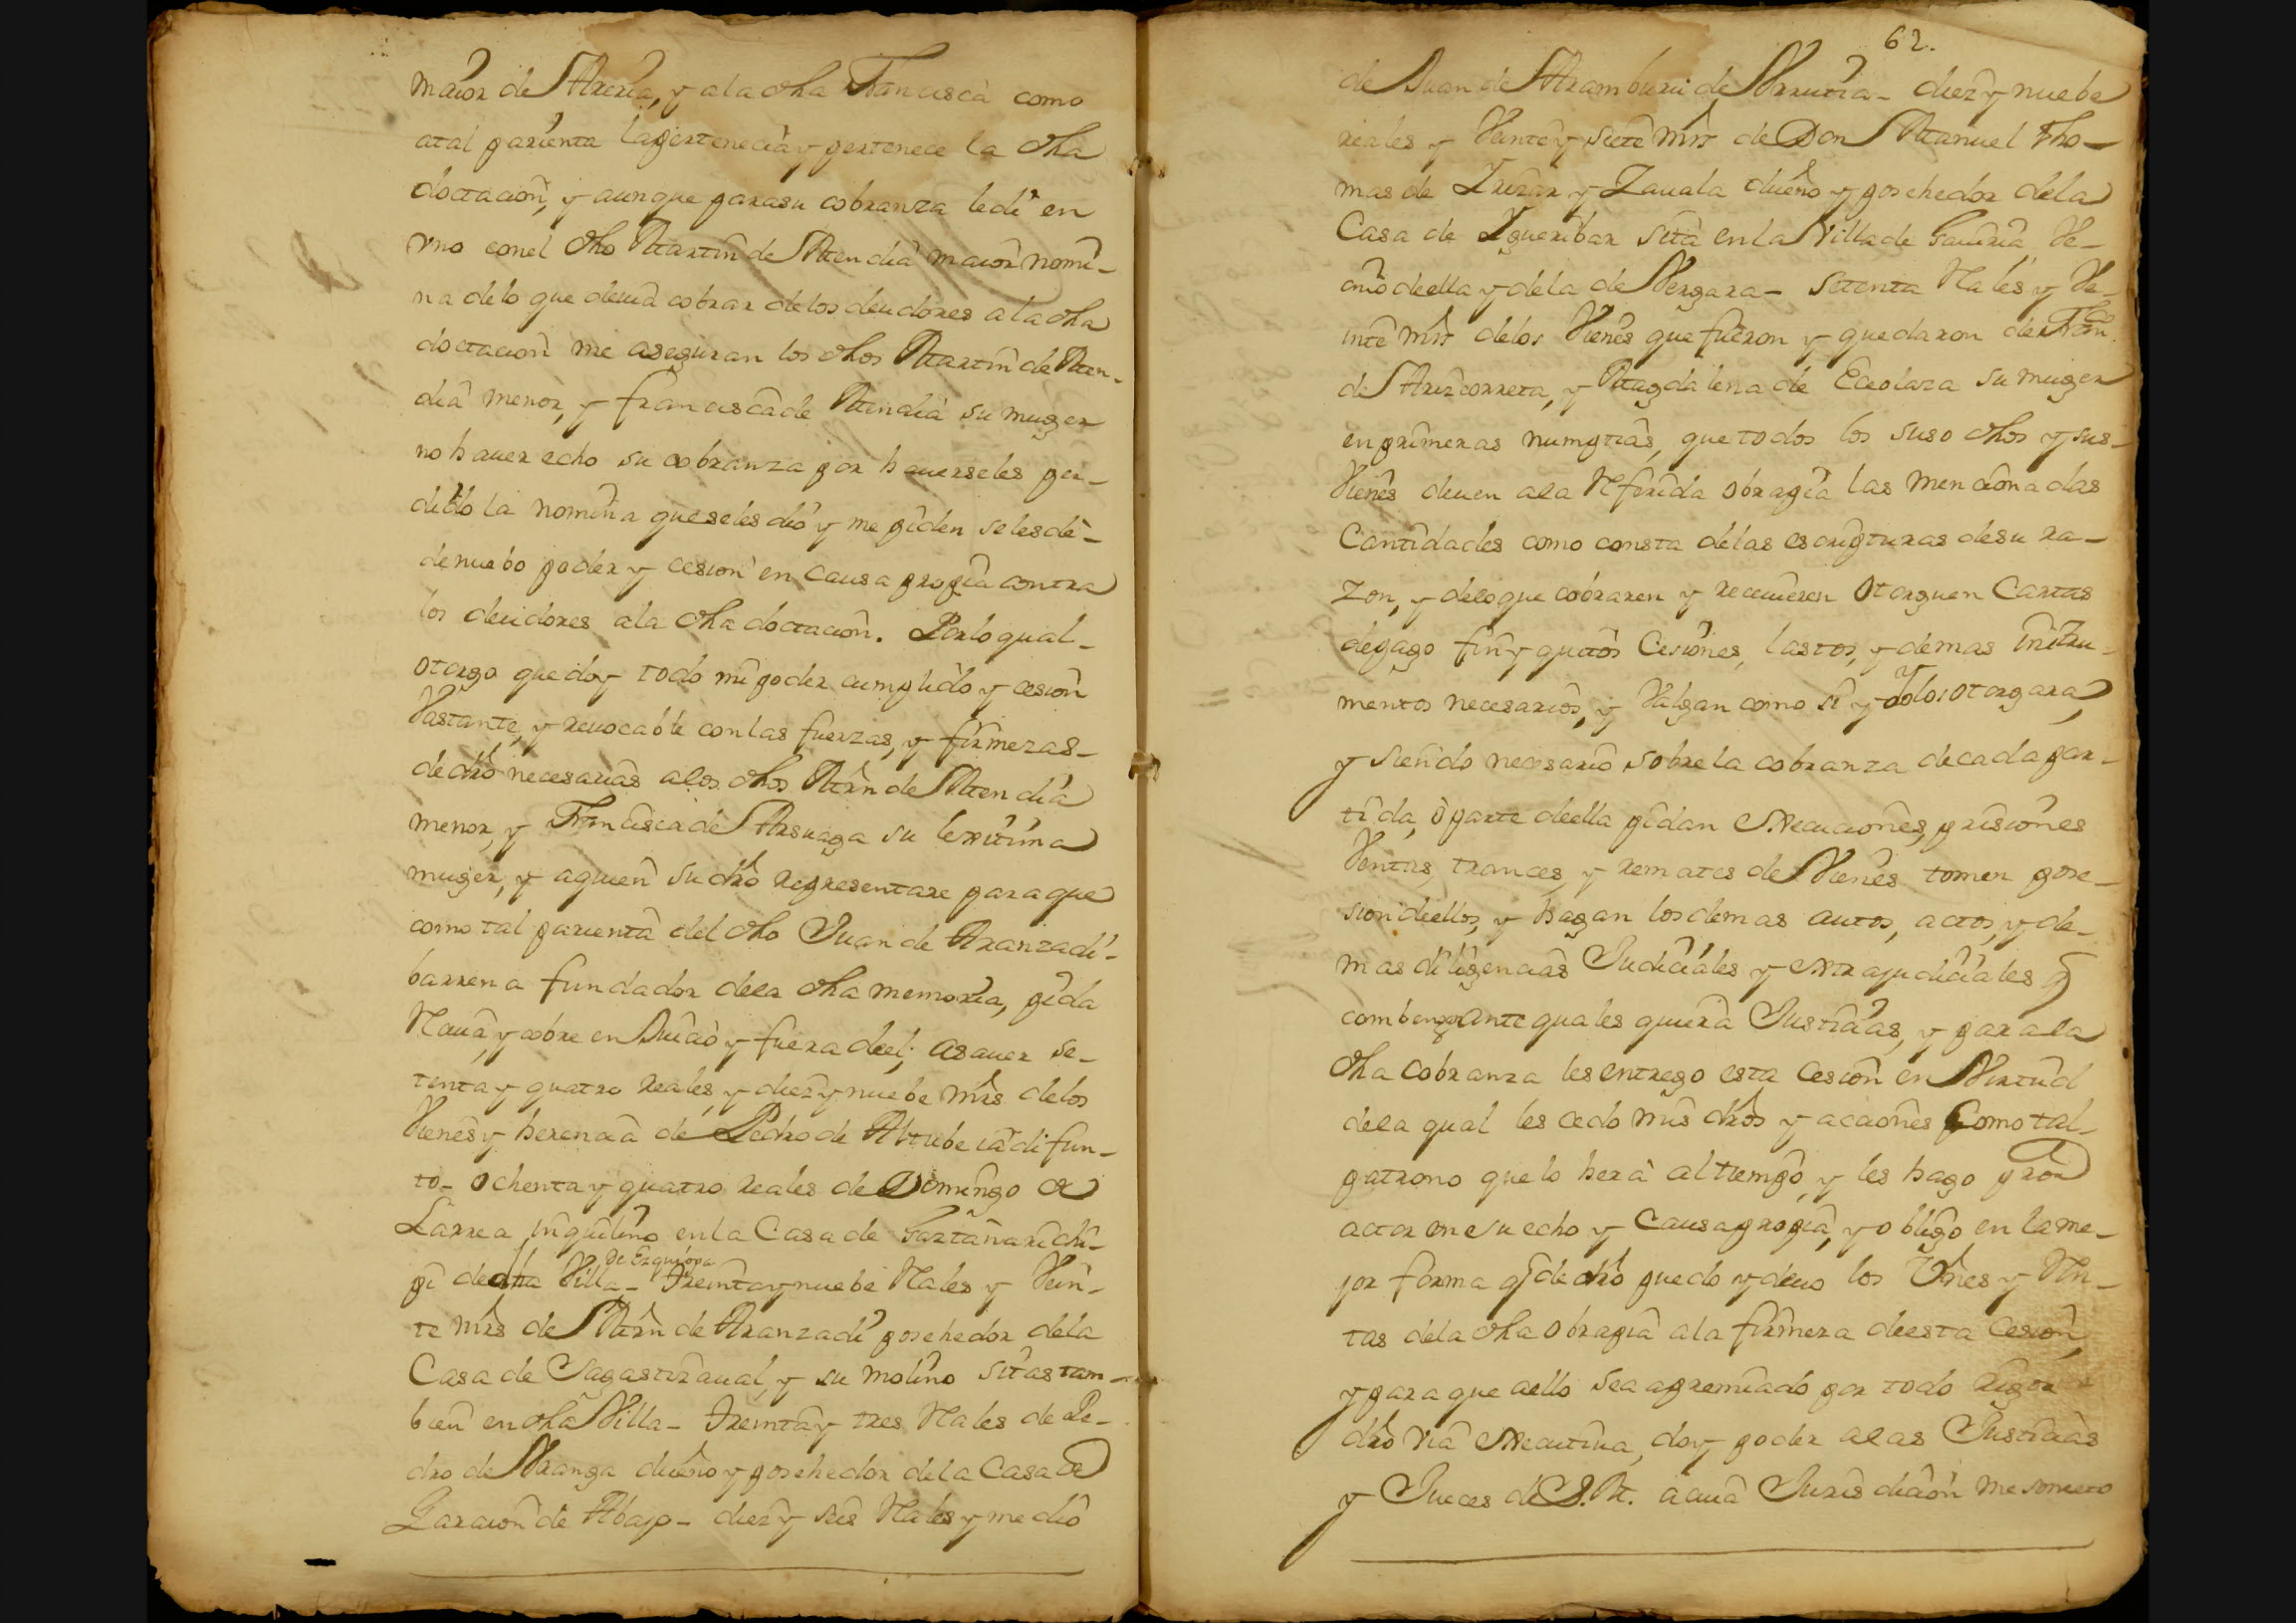 maior de Areria, y ala dha Francisca como
atal parienta la pertenecia y pertenece la dha
doctacion, y aunque para su cobranza le di en
vno conel dho Martin de Mendia maior nomi-
na delo que deuia cobrar delos deudores ala dha
doctacion me aseguran los dhos Martin de Men-
dia menor, y francisca de Mendia su muger
no hauer echo su cobranza por hauerseles per-
dido la nomina que seles dió y me piden seles dè-
de nuebo poder y cesion en causa propia contra
los deudores ala dha doctacion. Por lo qual-
otorgo que doy todo mi poder cumplido y cesion
Vastante, y reuocable con las fuerzas, y firmezas-
de dro necesarias alos dhos Mrn de Mendia
menor, y Francisca de Arsuaga su lexitima
muger, y aquien su dro representare para que
como tal parienta del dho Juan de Aranzadi-
barrena fundador dela dha memoria, pida
Reciua, y cobre en Juicio y fuera deel; asauer se-
tenta y quatro reales, y diez y nuebe mrs delos
Vienes y herencia de Pedro de Altube ia difun-
to- ochenta y quatro reales de Domingo de
Larrea Inquilino en la Casa de Gaztañarichi-
pi de dha Villa de Ezquioga - Treinta y nuebe Rales y Vein-
te mrs de Mrn de Aranzadi posehedor dela
Casa de Sagastizaual, y su molino sitas tam-
bien en dha Villa- Treinta y tres Rales de Pe-
dro de Vranga dueño y posehedor dela Casa de
Garacion de Abajo- diez y seis Rales y medio
62.
de Juan de Aramburu de Vrrutia- diez y nuebe
reales y Veinte y siete mrs de Don Manuel Tho-
mas de Irizar y Zauala dueño y posehedor dela
Casa de Igueribar sita en la Villa de Gauiria, Ve-
cino deella y dela de Vergara- Setenta Rales y Ve-
inte mrs delos Vienes que fueron y quedaron de Fran.co
de Arizcorreta, y Magdalena de Eceolaza su muger
en primeras numptias, que todos los suso dhos y sus-
Vienes deuen ala Referida obrapia las mencionadas
Cantidades como consta delas escripturas de su ra-
zon, y delo que cobraren y receuieren otorguen Cartas
depago finy quitos Cesiones, lastos, y demas instru-
mentos necesarios, y Valgan como si yo los otorgara,
y siendo necesario sobre la cobranza de cada par-
tida, ò parte deella pidan execuciones, prisiones
Ventas, trances, y remates de Vienes tomen pose-
sion deellos, y hagan los demas autos, actos, y de-
mas diligencias Judiciales y extrajudiciales q
combengan ante quales quiera Justicias, y para la
dha cobranza les entrego esta cesion en Virtud
dela qual les cedo mis dros y acciones Como tal-
patrono que lo hera al tiempo, y les hago pror
actor en su echo y Causa propia, y obligo en la me-
jor forma q de dro puedo y deuo los Vnes y Rn-
tas dela dha obrapia ala firmeza de esta Cesion,
y para que aello sea apremiado por todo rigor
dro via executiua, doy poder alas Justicias
y Jueces de S.M. a cuia Jurisdicion me someto